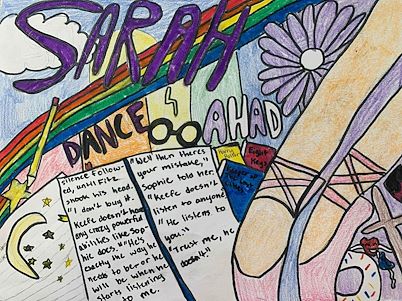 SARAH
DANCE
AHAD
Harry Potter
Eight Keys
Keeper of
Silence follow-
ed, until Fitz
shook his head.
"I don't buy it.
Keefe doesn't have
any crazy powerful
abilities like Sop-
hie does. He's
exactly the way he
needs to be or he
will be when he
starts listening
to me.
"Well then theres
your mistake,"
Sophie told her.
"Keefe doesn't
listen to anyone
"He listens to
you."
"Trust me, he
doesn't!"